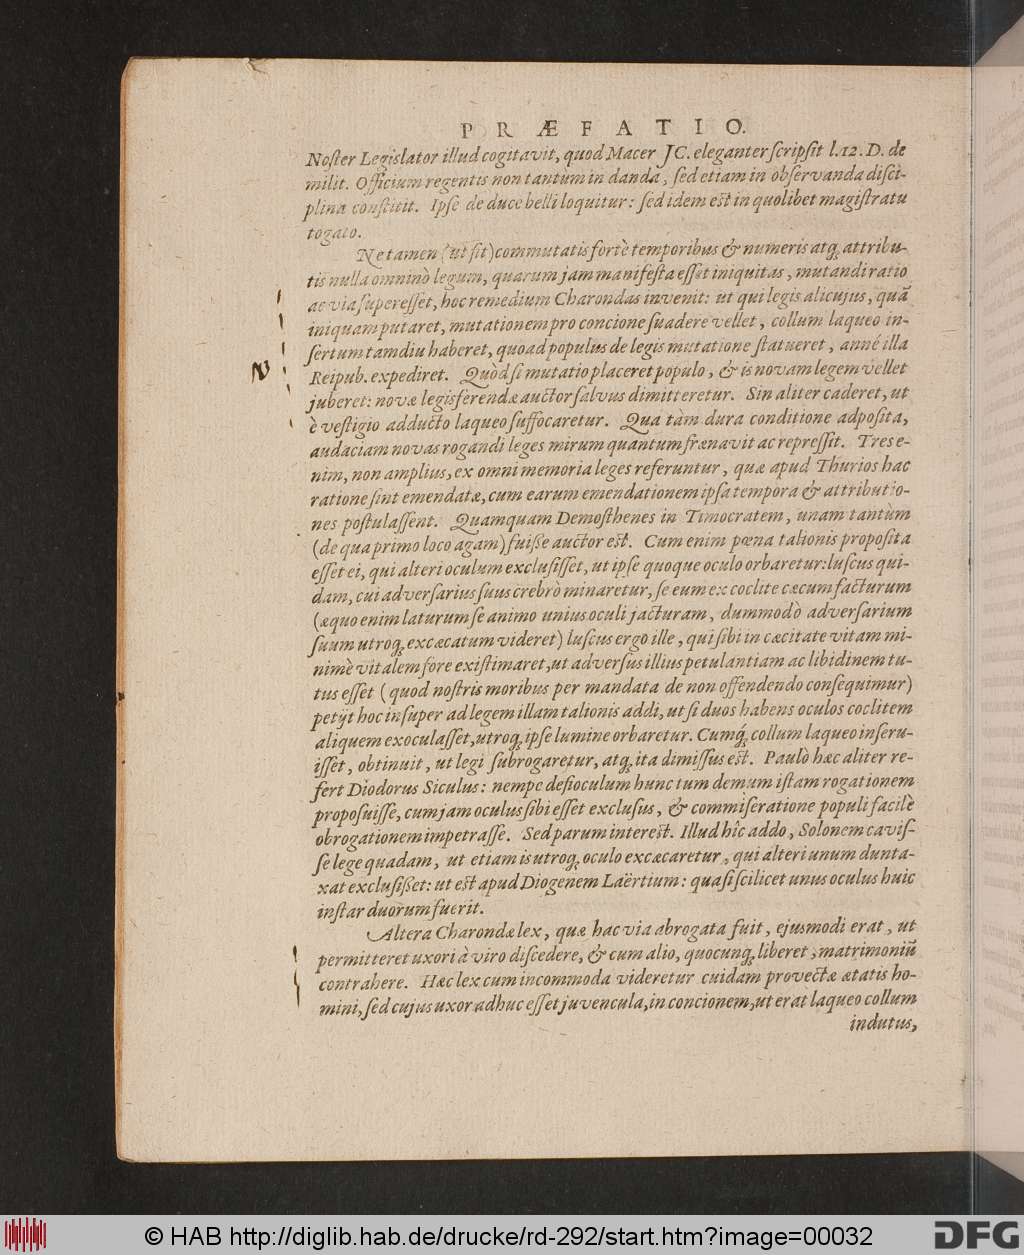 PRÆFATIO.
Noster Legislator illud cogitavit, quod Macer JC. eleganter scripsit l.12. D. de
milit. Officium regentis non tantum in danda, sed etiam in observanda disci-
plina constitit. Ipse de duce belli loquitur: sed idem est in quolibet magistratu
togato.
Ne tamen (ut fit) commutatis fortè temporibus & numeris atq; attribu-
tis nulla omninò legum, quarum jam manifesta esset iniquitas, mutandi ratio
ac via superesset, hoc remedium Charondas invenit: ut qui legis alicujus, quā
iniquam putaret, mutationem pro concione suadere vellet, collum laqueo in-
sertum tamdiu haberet, quoad populus de legis mutatione statueret, anné illa
Reipub. expediret. Quòd si mutatio placeret populo, & is novam legem vellet
juberet: novæ legis ferendæ auctor salvus dimitteretur. Sin aliter caderet, ut
è vestigio adducto laqueo suffocaretur. Qua tàm dura conditione adposita,
audaciam novas rogandi leges mirum quantum frænavit ac repressit. Tres e-
nim, non amplius, ex omni memoria leges referuntur, quæ apud Thurios hac
ratione sint emendatæ, cum earum emendationem ipsa tempora & attributio-
nes postulassent. Quamquam Demosthenes in Timocratem, unam tantùm
(de qua primo loco agam) fuisse auctor est. Cum enim pœna talionis proposita
esset ei, qui alteri oculum exclusisset, ut ipse quoque oculo orbaretur: luscus qui-
dam, cui adversarius suus crebrò minaretur, se eum ex coclite cæcum facturum
(æquo enim laturum se animo unius oculi jacturam, dummodò adversarium
suum utroq; excæcatum videret) luscus ergo ille, qui sibi in cæcitate vitam mi-
nimè vitalem fore existimaret, ut adversus illius petulantiam ac libidinem tu-
tus esset (quod nostris moribus per mandata de non offendendo consequimur)
petijt hoc insuper ad legem illam talionis addi, ut si duos habens oculos coclitem
aliquem exoculasset, utroq; ipse lumine orbaretur. Cumq́; collum laqueo inseru-
isset, obtinuit, ut legi subrogaretur, atq; ita dimissus est. Paulò hæc aliter re-
fert Diodorus Siculus: nempe defioculum hunc tum demum istam rogationem
proposuisse, cum jam oculus sibi esset exclusus, & commiseratione populi facilè
obrogationem impetrasse. Sed parum interest. Illud hîc addo, Solonem cavis-
se lege quadam, ut etiam is utroq; oculo excæcaretur, qui alteri unum dunta-
xat exclusisset: ut est apud Diogenem Laërtium: quasi scilicet unus oculus huic
instar duorum fuerit.
Altera Charondæ lex, quæ hac via abrogata fuit, ejusmodi erat, ut
permitteret uxori à viro discedere, & cum alio, quocunq; liberet, matrimoniū
contrahere. Hæc lex cum incommoda videretur cuidam provectæ ætatis ho-
mini, sed cujus uxor adhuc esset juvencula, in concionem, ut erat laqueo collum
indutus,
© HAB http://diglib.hab.de/drucke/rd-292/start.htm?image=00032
DFG